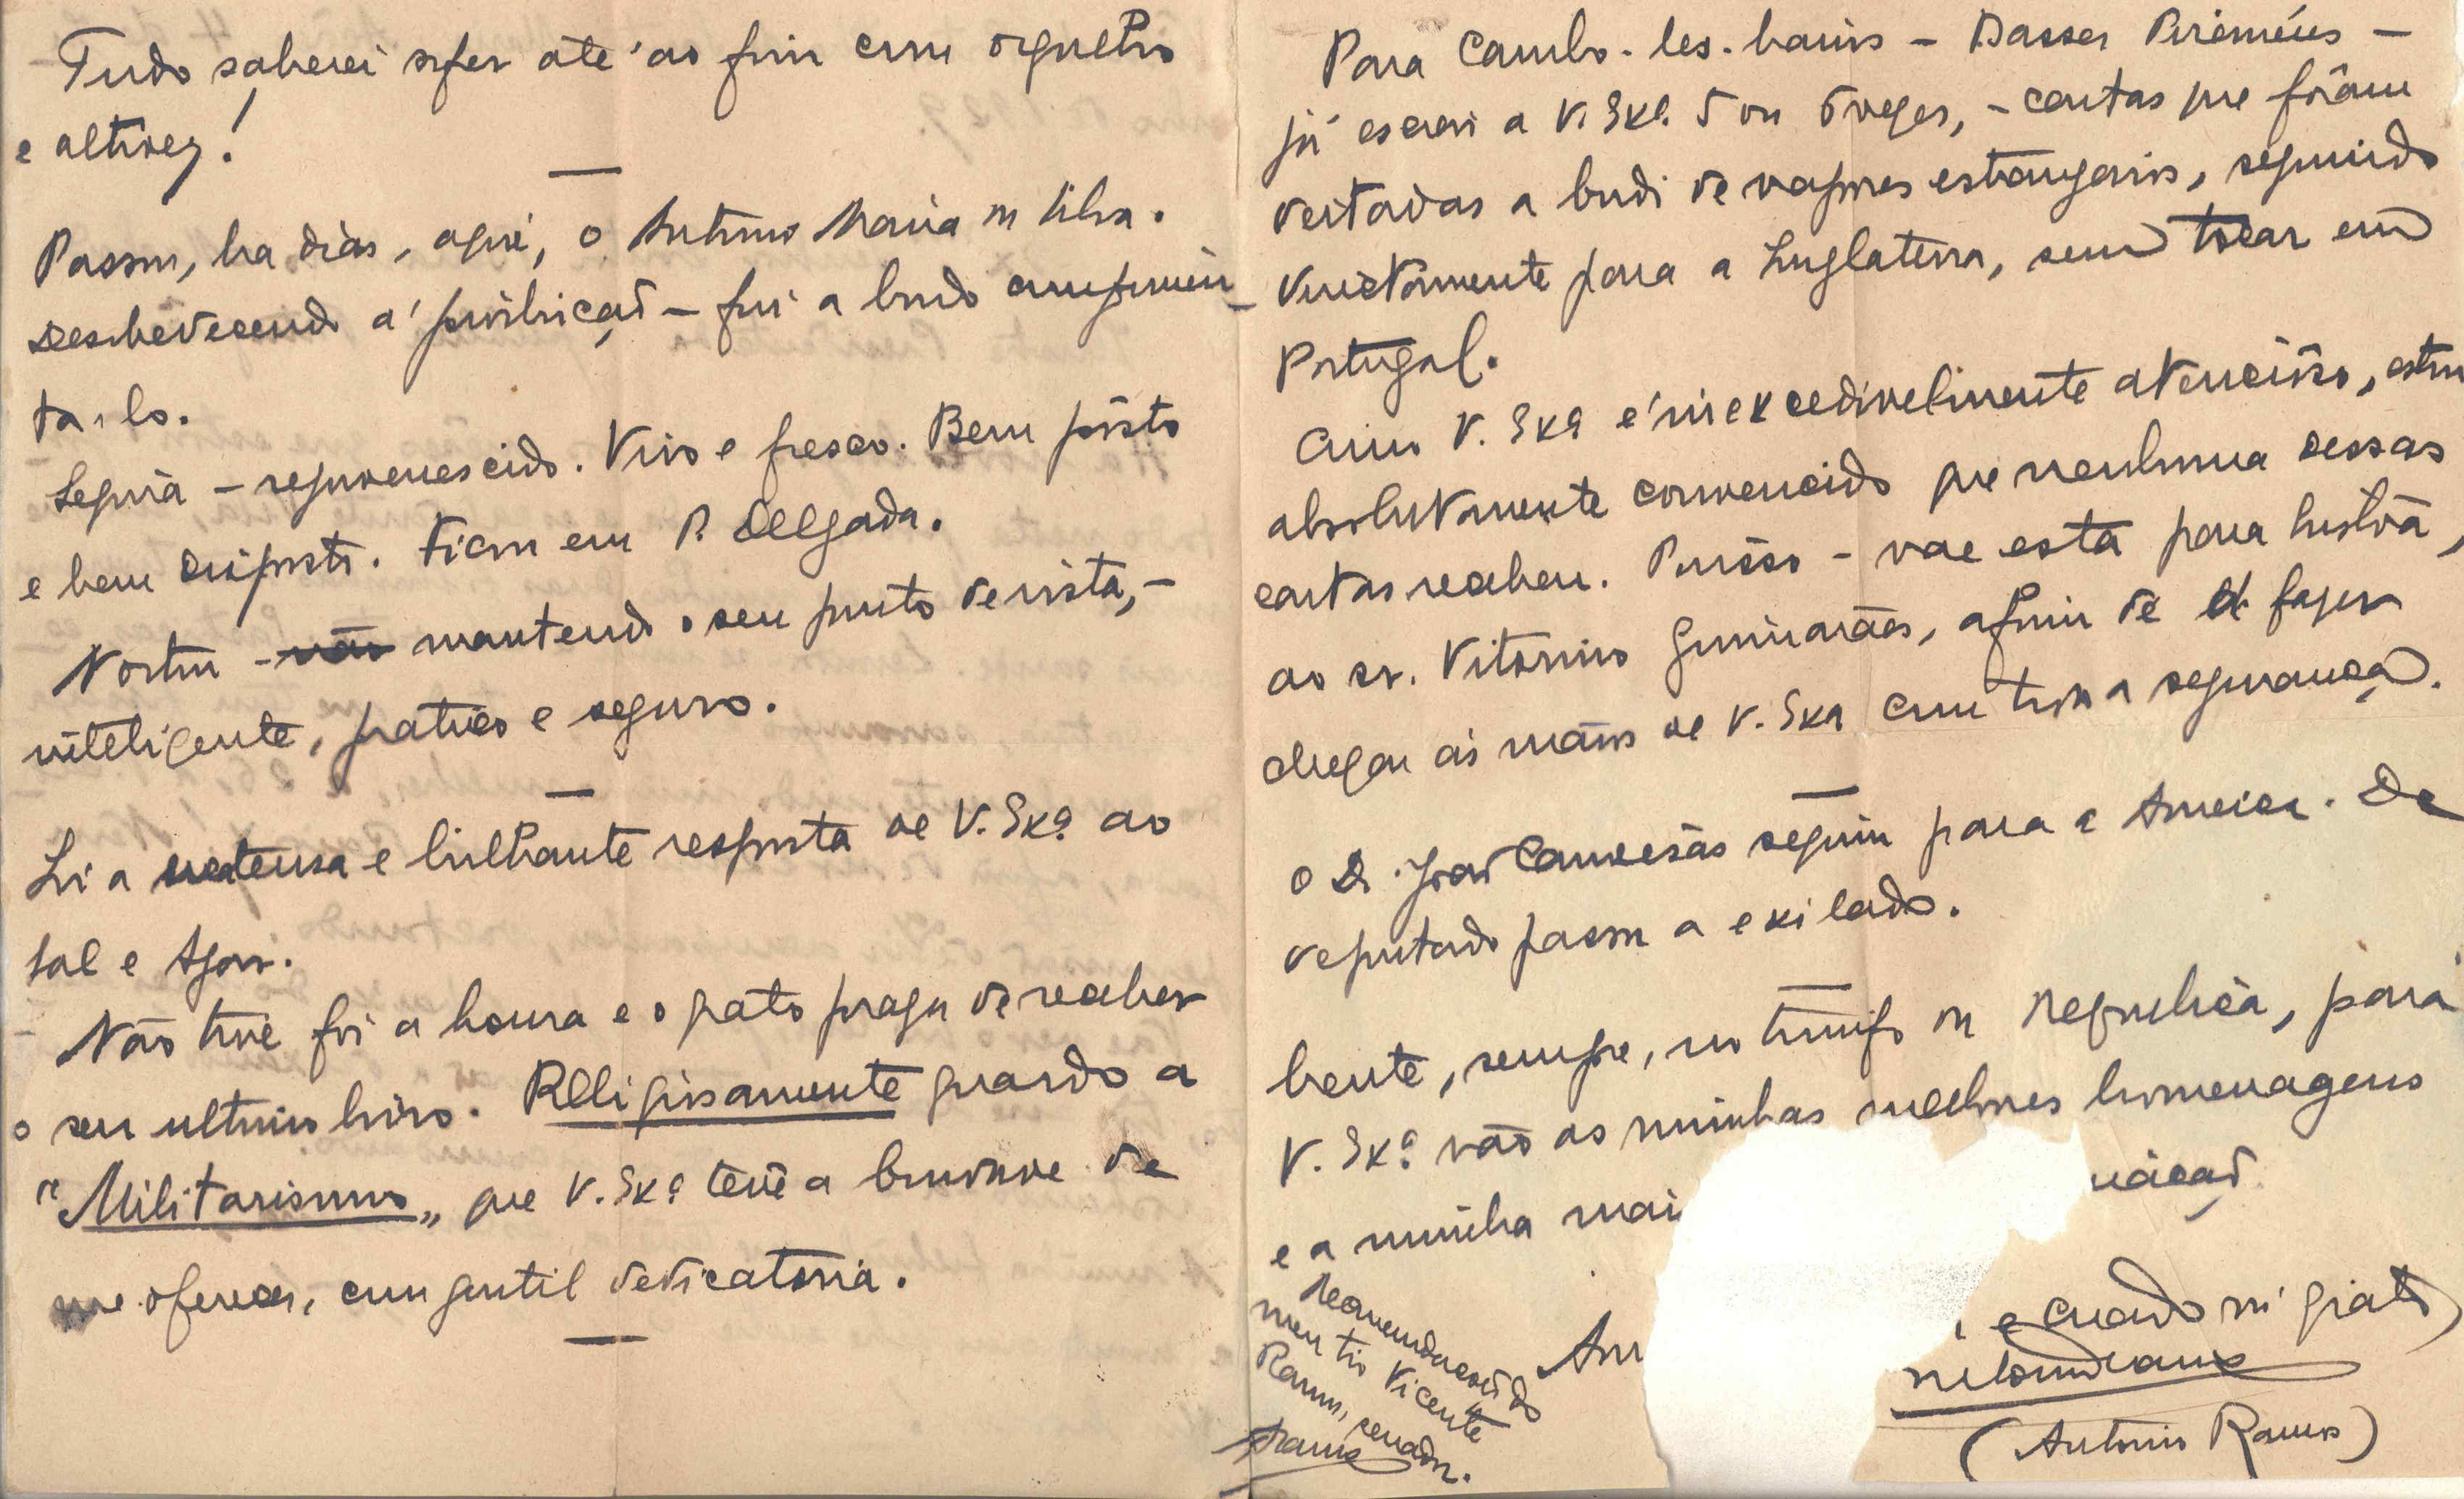 Tudo saberei sofrer até ao fim com orgulho
e altivez!
Passou, ha dias, aqui, o Antonio Maria da Silva.
Desobedecendo á proibição – fui a bordo cumprimen-
ta-lo.
Seguia – rejuvenescido. Vivo e fresco. Bem pôsto
e bem disposto. Ficou em P. Delgada.
Norton – mantendo o seu ponto de vista, –
inteligente, pratico e seguro.
Li a extensa e brilhante resposta de V. Exª ao
tal e Agor.
Não tive foi a honra e o grato prazer de receber
o seu ultimo livro. Religiosamente guardo a
"Militarismo" que V. Exª teve a bondade de
me oferecer, com gentil dedicatoria.
Para Cambo-les-bains – Basses Pirénées –
já escrevi a V. Exª 5 ou 6 vezes, – cartas que fôram
deitadas a bordo de vapores estrangeiros, seguindo
directamente para a Inglaterra, sem tocar em
Portugal.
Como V. Exª é inexcedivelmente atencioso, estou
absolutamente convencido que nenhuma dessas
cartas recebeu. Por isso – vae esta para Lisboa,
ao sr. Vitorino Guimarães, afim de fazer
chegar ás mãos de V. Exª com toda a segurança.
O Dr. João Camoesas seguiu para a America. De
deputado passou a exilado.
Crente, sempre, no triunfo da Republica, para
V. Exª vão as minhas melhores homenagens
e a minha mai
Am e criado mº grato
(Antonio Ramos)
Recomendações do
meu tio Vicente
Ramos, senador.
Ramos